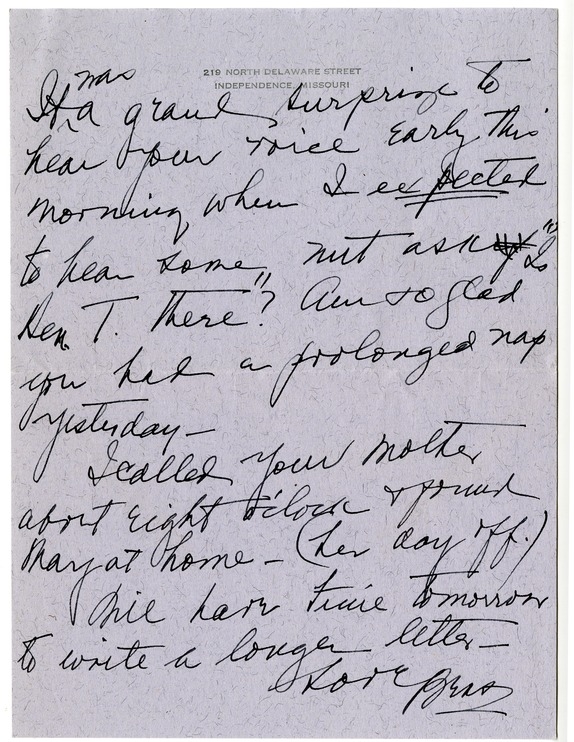 219 NORTH DELAWARE STREET
INDEPENDENCE, MISSOURI
It was a grand surprise to
hear your voice early this
morning when I expected
to hear some nut ask "Is
Sen. T. there"? Am so glad
you had a prolonged nap
yesterday—
I called your mother
about eight o'clock & found
Mary at home — (her day off.)
Will have time tomorrow
to write a longer letter—
Love Bess